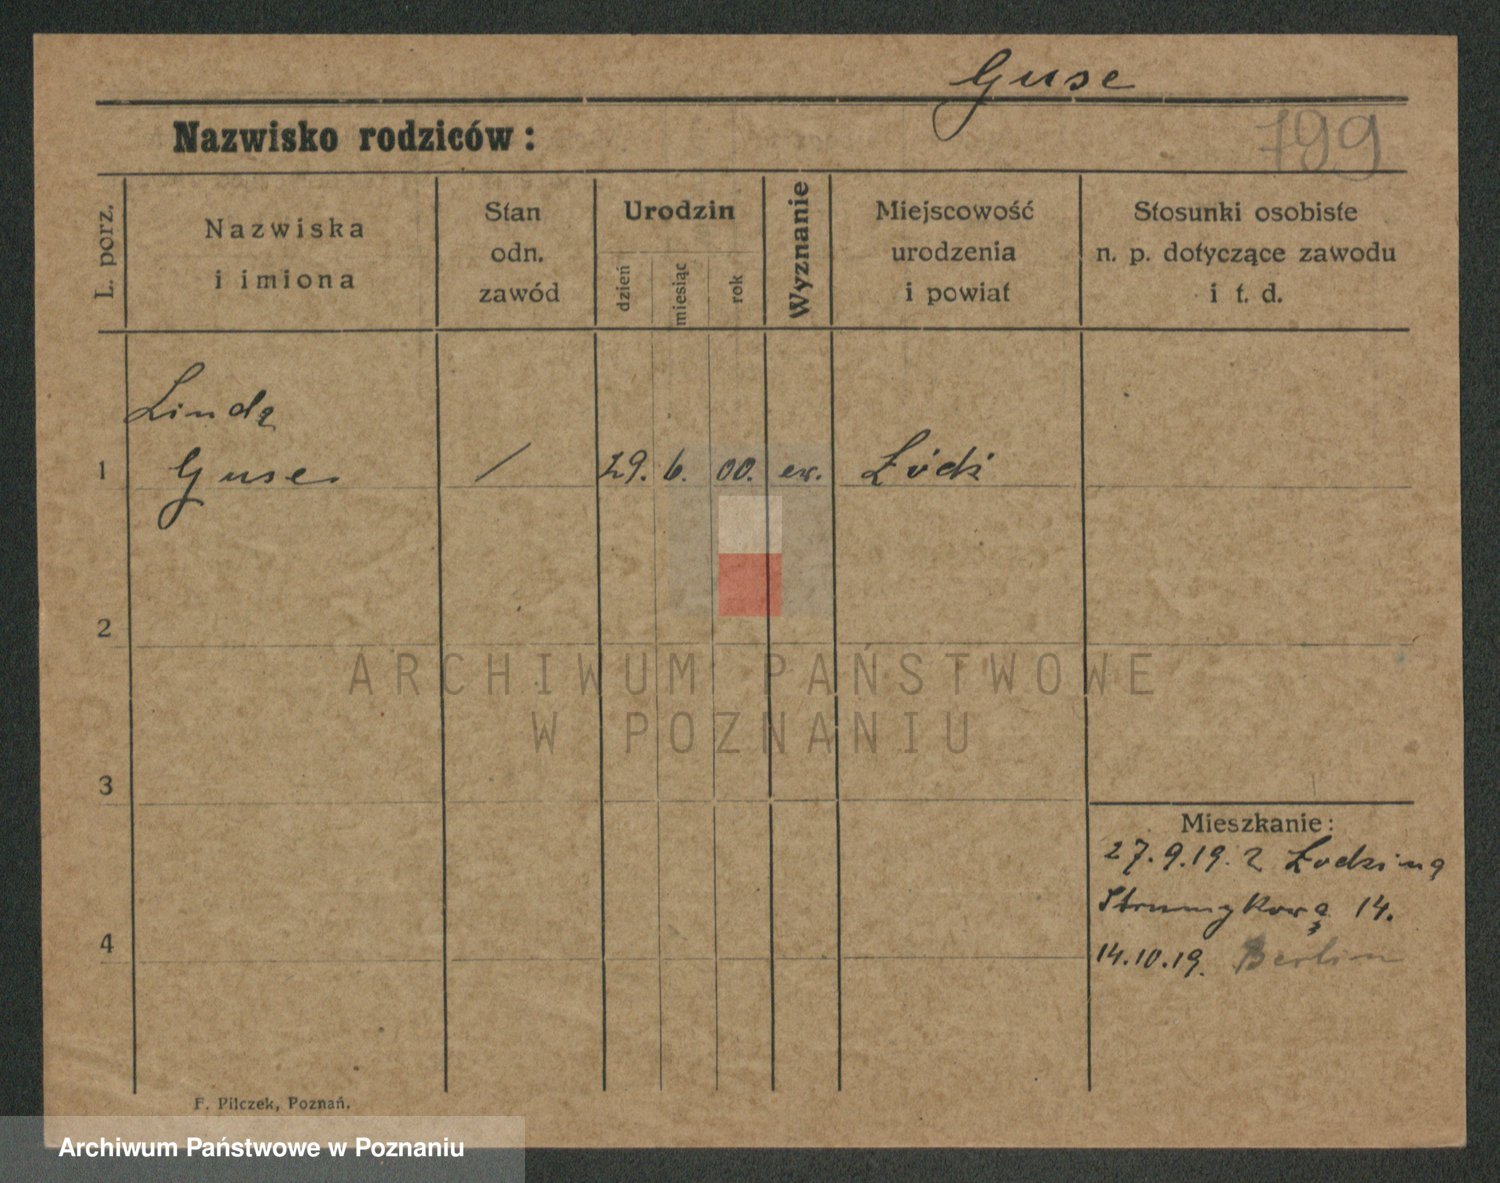 Guse
Nazwisko rodziców :
799
L. porz.
Nazwiska
i imiona
Stan
odn.
zawód
Urodzin
dzień
miesiąc
rok
Wyznanie
Miejscowość
urodzenia
i powiat
Stosunki osobiste
n. p. dotyczące zawodu
i t. d.
Linda
1 Guse / 29. 6. 00. ew. Łódź
2
ARCHIWUM PAŃSTWOWE
W POZNANIU
3
Mieszkanie:
27.9.19. z
Strumykowa 14.
4
14.10.19. Berlin
F. Pilczek, Poznań.
Archiwum Państwowe w Poznaniu